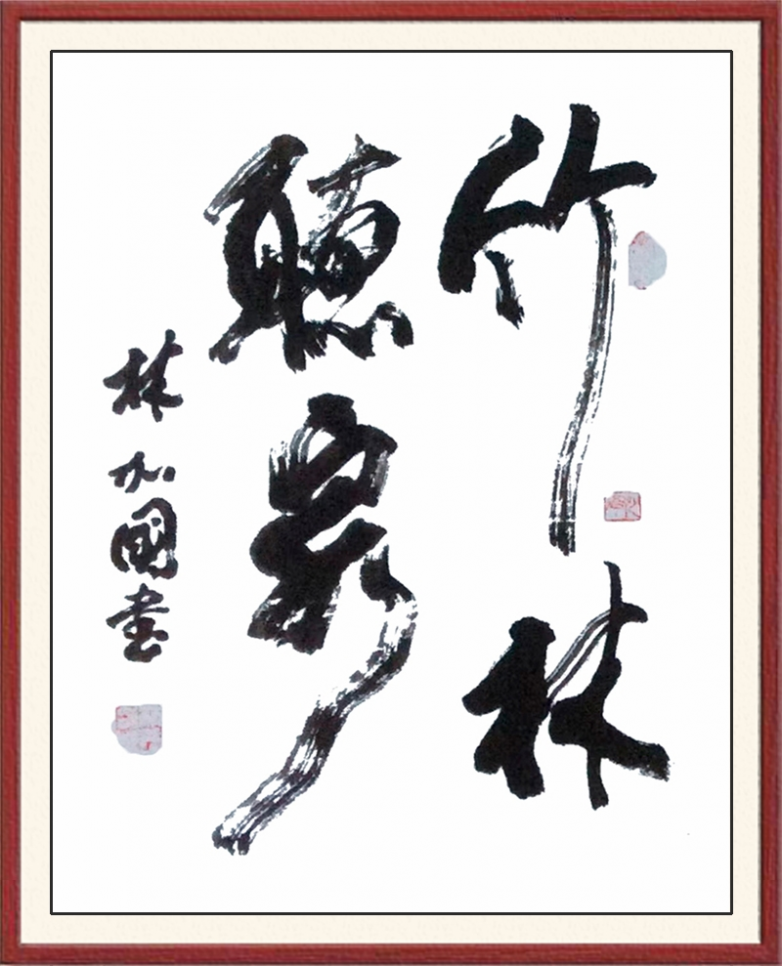 竹林
聽泉
林加國書